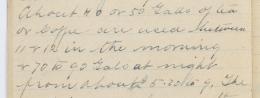 About 40 or 50 Galls of tea
or Coffee are used between
11 & 12 in the morning
& 70 to 90 Gals at night
from about 5-20 to 9. The